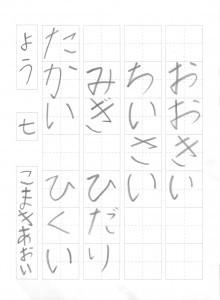 おおきい
ちいさい
みぎ ひだり
たかい ひくい
よう 七 こまきあおい